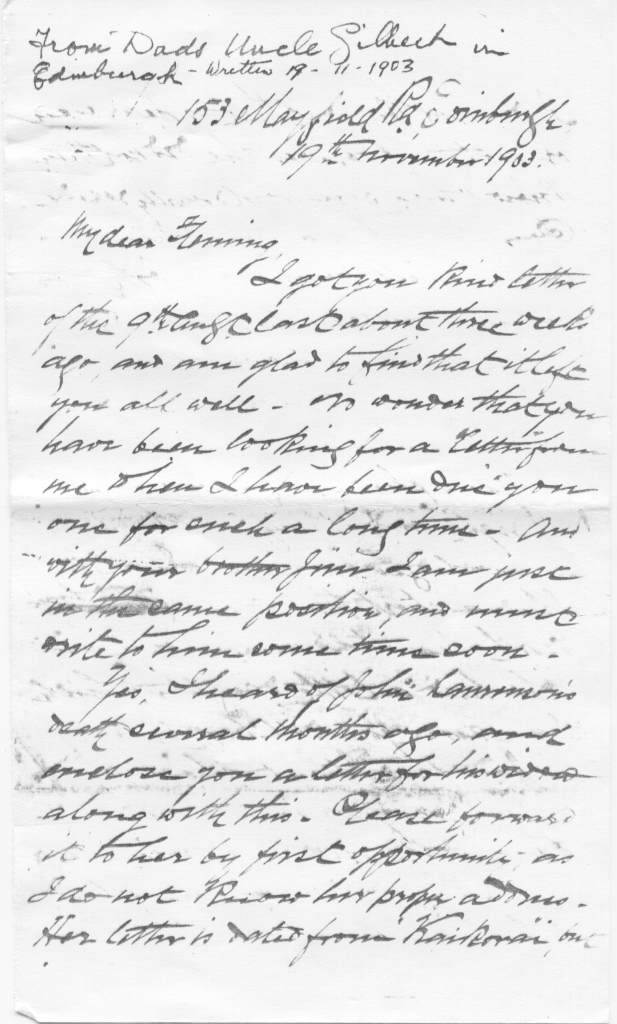 From Dads Uncle Gilbert in
Edinburgh - Written 19-11-1903
153 Mayfield Rd Edinburgh
19th November 1903.
My dear Fleming,
I got your kind letter
of the 9th Augt last about three weeks
ago, and am glad to find that it left
you all well - No wonder that you
have been looking for a letter from
me when I have been due you
one for such a long time - And
with your brother Jim I am just
in the same position, and must
write to him some time soon -
Yes, I heard of John Laurenson's
death several months ago, and
enclose you a letter for his widow
along with this - Please forward
it to her by first opportunity, as
I do not know her proper address -
Her letter is dated from "Kaikorai", but